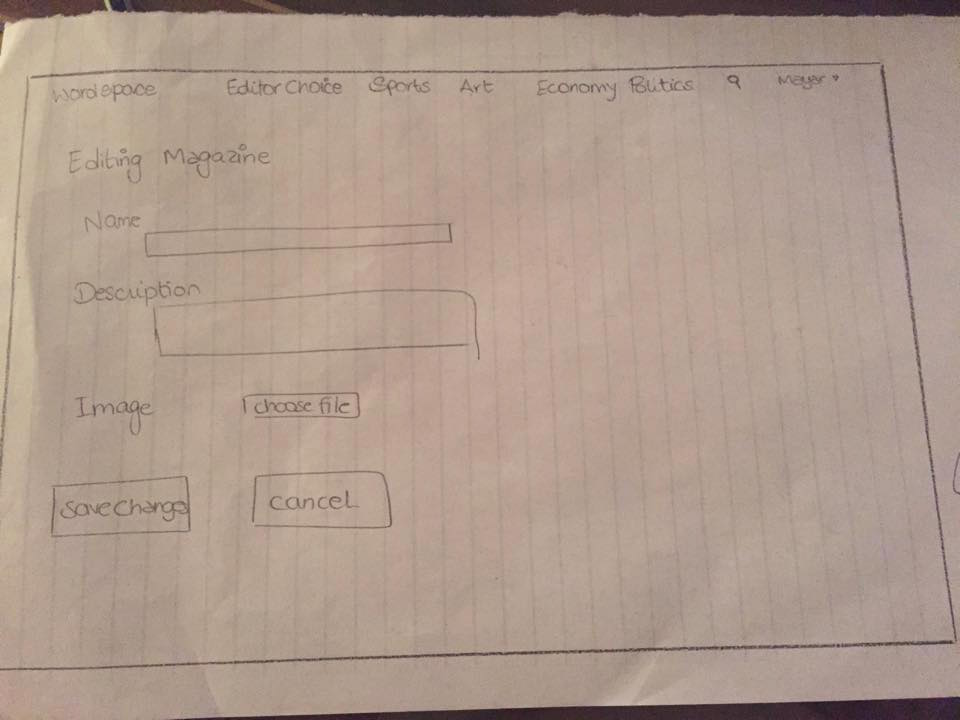 Wordspace Editor Choice Sports Art Economy Politics Meyer
Editing Magazine
Name
Description
Image choose file
Save Change Cancel